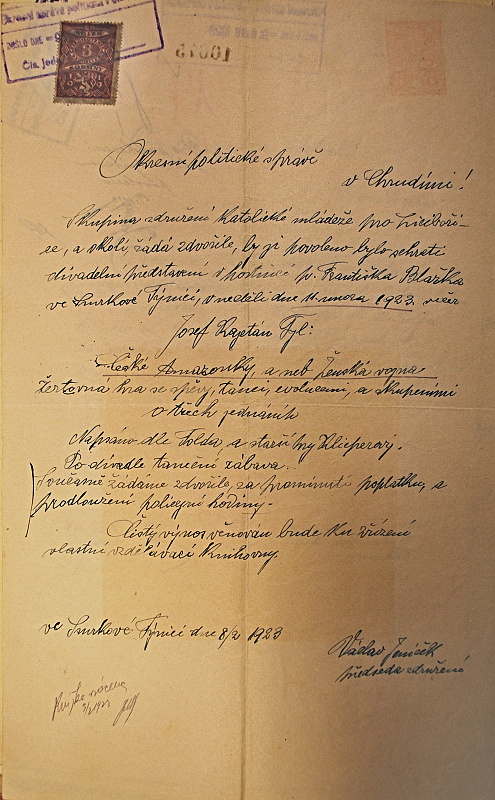 Okresní politické správě
v Chrudimi!
Skupina sdružení katolické mládeže pro
se, a okolí, žádá zdvořile, by jí povoleno bylo sehráti
divadelní představení v hostinci p. Františka Blažka
ve Smrkově Týnici, v neděli dne 11. února 1923. večer
Josef Kajetán Tyl:
České Amazonky, a neb Ženská vojna
žertovná hra se zpěvy, tanci, evolucemi, a skupeními
o třech jednáních
Napsáno dle Folda a starší hry Klicperovy.
Po divadle taneční zábava.
Současně žádáme zdvořile, za prominutí poplatku, a
prodloužení policejní hodiny.
Čistý výnos věnován bude ku zřízení
vlastní vzdělávací knihovny.
ve Smrkově Týnici dne 8/2 1923
Václav Jeníček
předseda sdružení